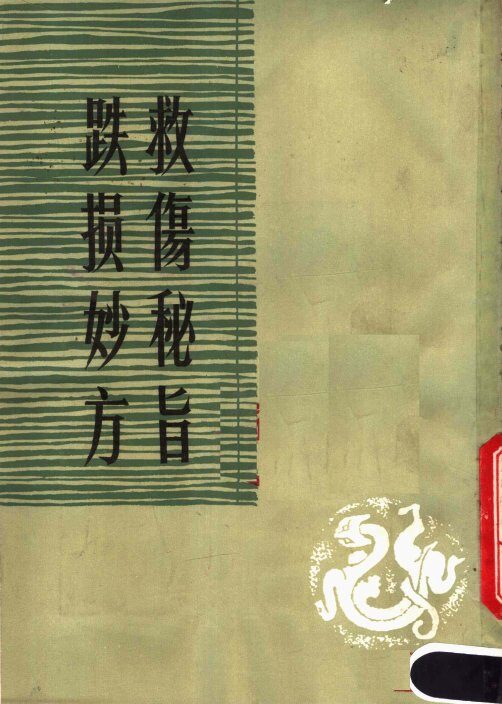 救傷秘旨
跌损妙方